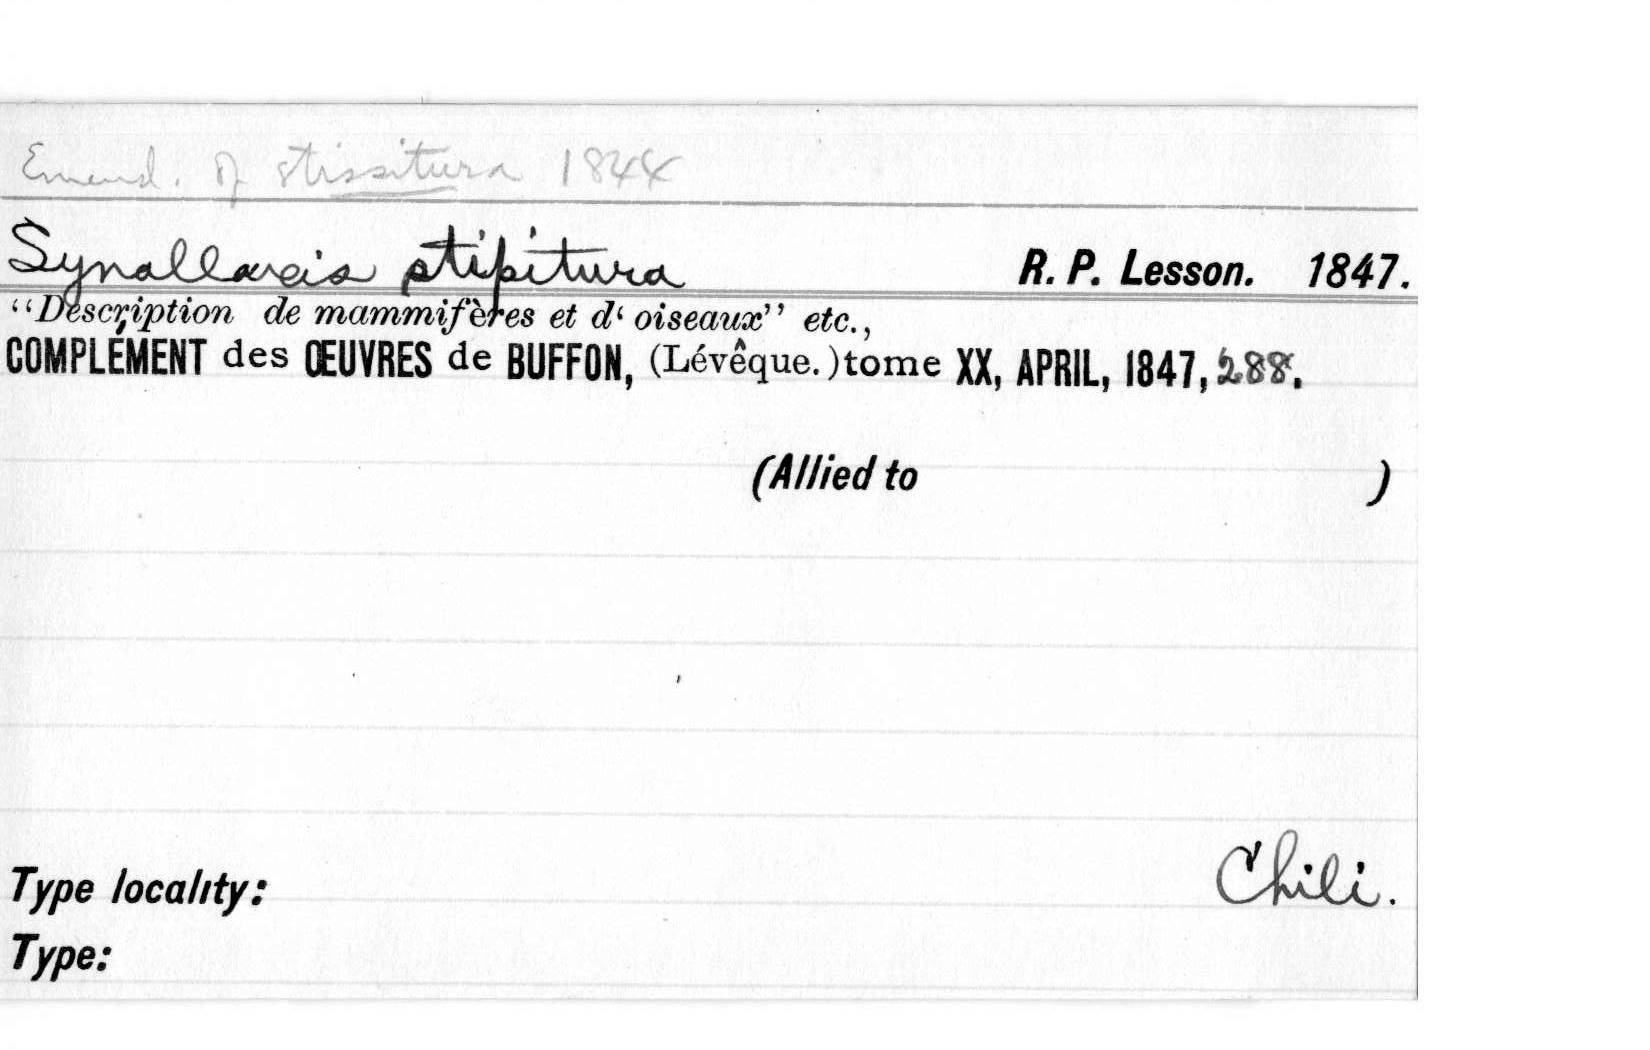 Emend. of stissitura 1844
Synallaxis stipitura R. P. Lesson. 1847.
“Description de mammifères et d‘ oiseaux” etc.,
COMPLÉMENT des ŒUVRES de BUFFON, (Lévêque.) tome XX, APRIL, 1847, 288.
(Allied to )
Type locality: Chili.
Type: